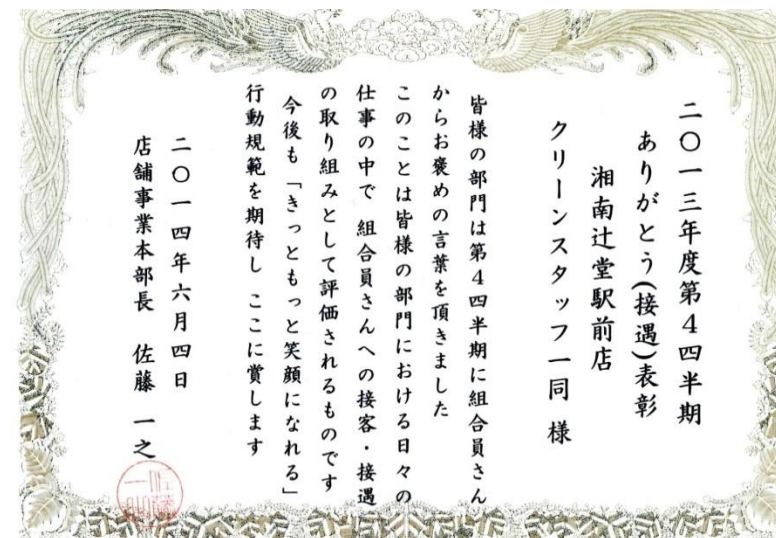 二〇一三年度第4四半期
ありがとう(接遇)表彰
湘南辻堂駅前店
クリーンスタッフ一同 様
皆様の部門は第4四半期に組合員さん
からお褒めの言葉を頂きました
このことは皆様の部門における日々の
仕事の中で 組合員さんへの接客・接遇
の取り組みとして評価されるものです
今後も「きっともっと笑顔になれる」
行動規範を期待し ここに賞します
二〇一四年六月四日
店舗事業本部長 佐藤 一之
佐藤一之